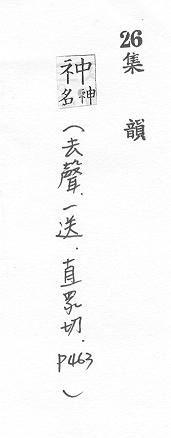 26
集韻
祌 神名
（去聲．一送．直眾切．P463）